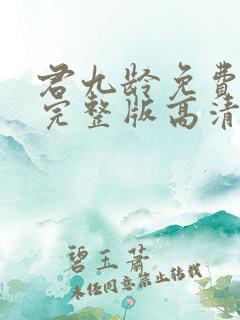 君九龄免费
完整版高清
碧玉萧
未经同意禁止转载